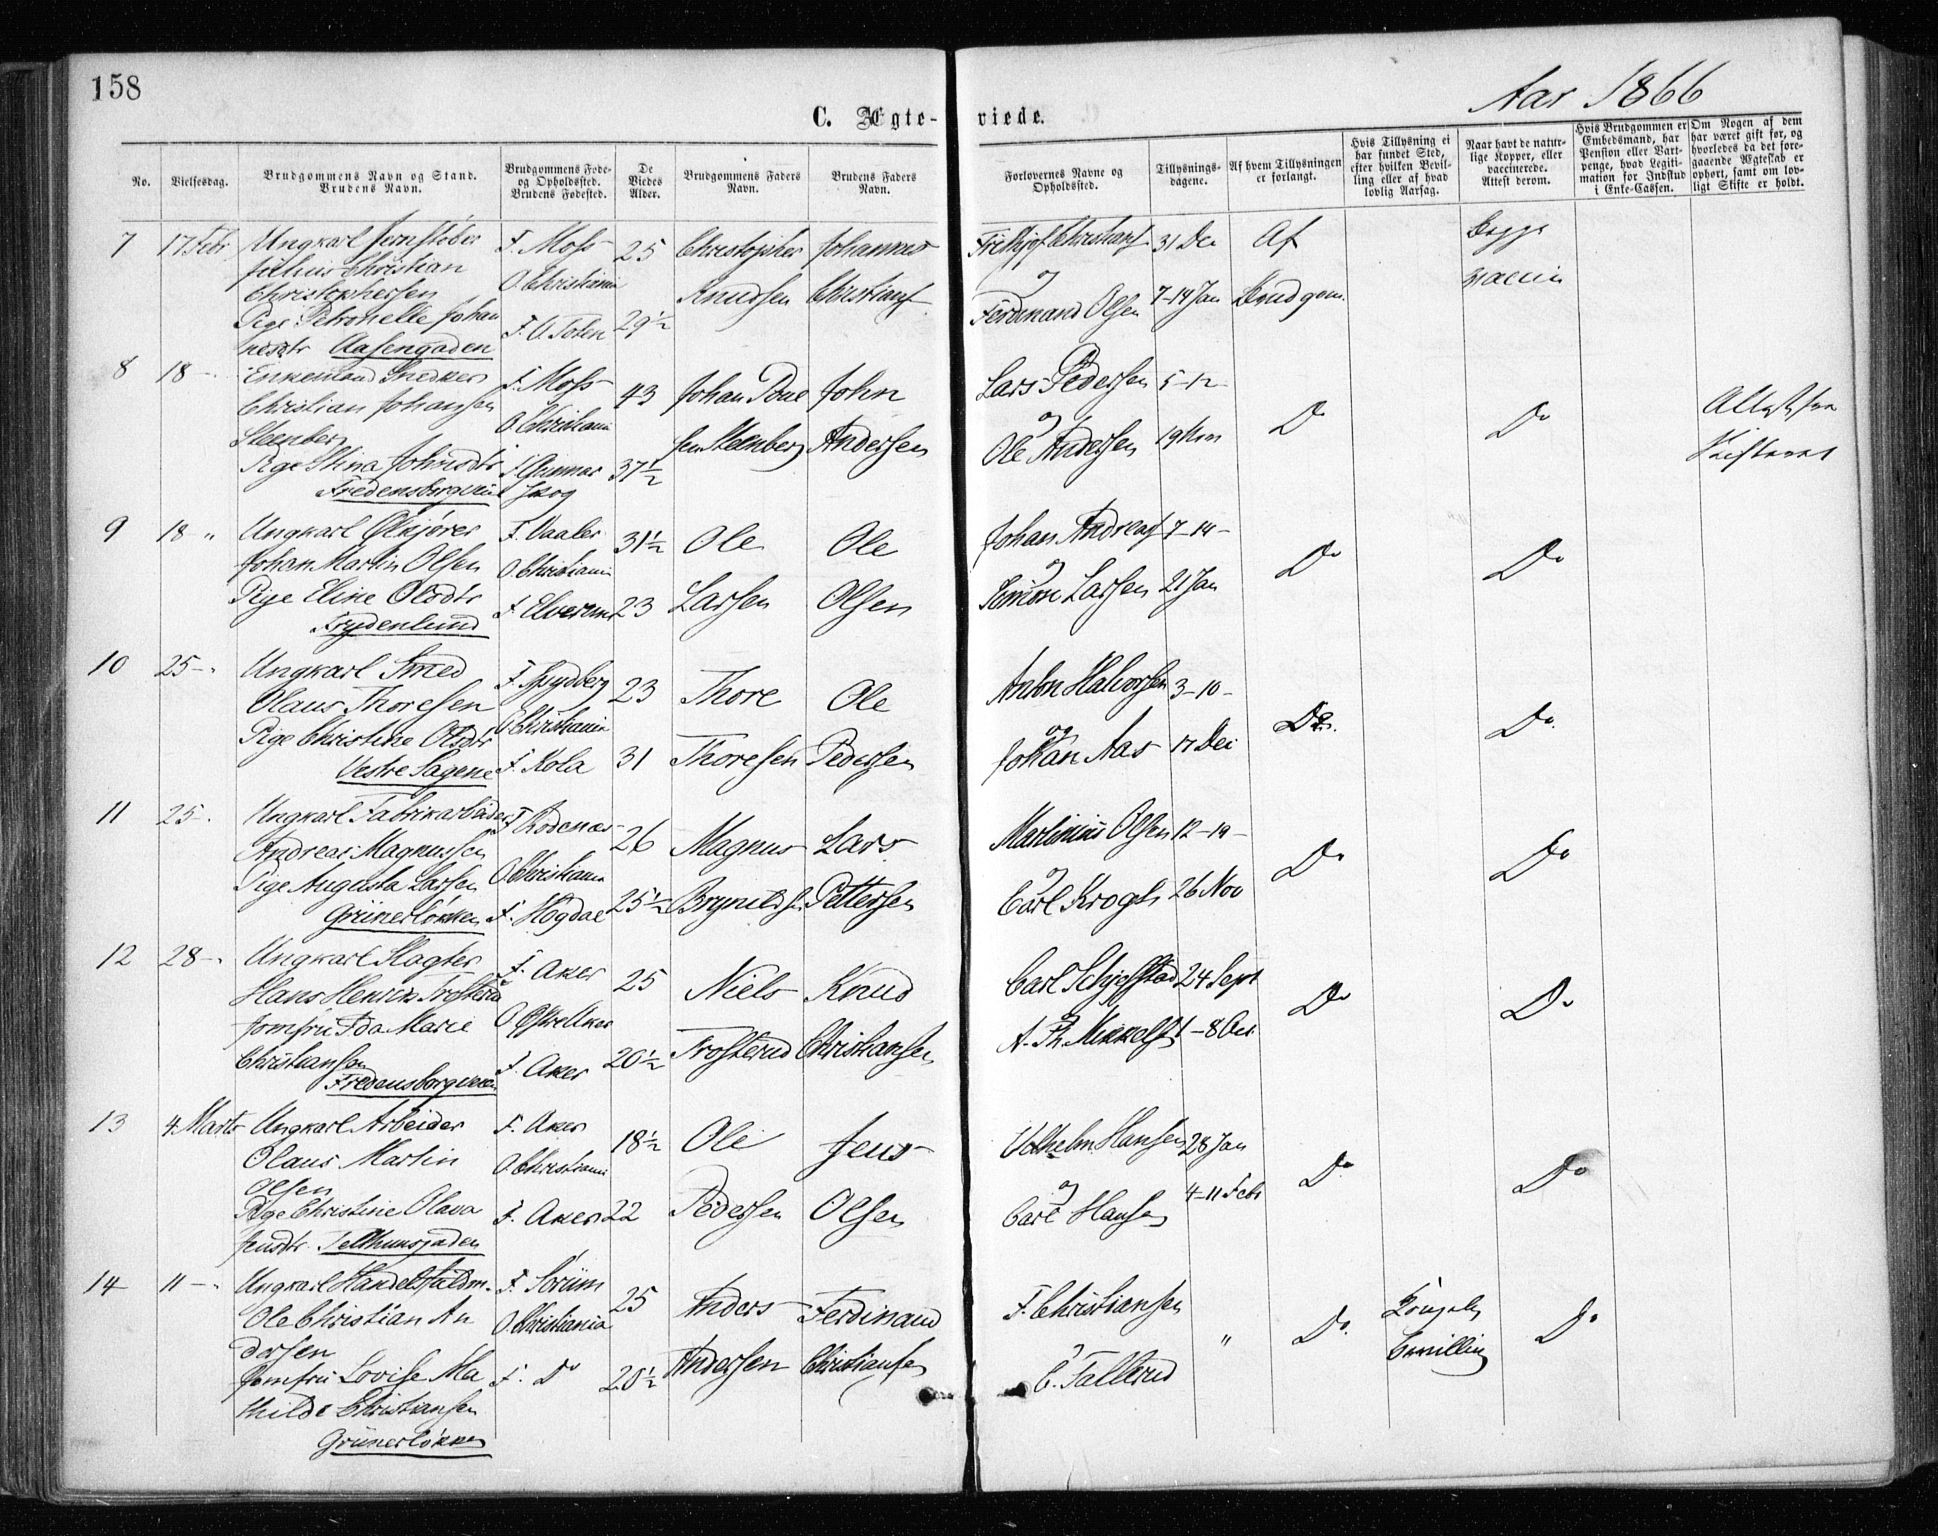 158
Aar 1866
C. Ægte-viede.
No.
Vielsesdag.
Brudgommens Navn og Stand.
Brudens Navn.
Brudgommens Føde-
og Opholdssted.
Brudens Fødested.
De
Viedes
Alder.
Brudgommens Faders
Navn.
Brudens Faders
Navn.
Forlovernes Navne og
Opholdssted.
Tillysnings-
dagene.
Af hvem Tillysningen
er forlangt.
Hvis Tillysning ei
har fundet Sted,
efter hvilken Bevil-
ling eller af hvad
lovlig Aarsag.
Naar havt de natur-
lige Kopper, eller
vaccinerede.
Attest derom.
Hvis Brudgommen er
Embedsmand, har
Pension eller Vart-
penge, hvad Legiti-
mation for Indskud
i Enke-Cassen.
Om Nogen af dem
har været gift før, og
hvorledes da det fore-
gaaende Ægteskab er
ophørt, samt om lov-
ligt Skifte er holdt.
7 17 Febr Ungkarl Jernstøber F. Moss 25 Christopher Johannes Frithjof Christians 31 Dec Af Begge
Julius Christian O. Christiania
Christophersen Knudsen Christians og 7-14 Jan Brudgom. vaccin
Pige Petronelle Johan F. V. Toten 29½ Ferdinand Olsen
nesdtr Aasengaden
8 18 - Enkemand Snedker F. Moss 43 Johan Poue John Lars Pedersen 5-12
Christian Johansen O. Christiania og Do Do
Steenberg sen Steenberg Andersen Ole Andersen 19
Pige Stina Johnsdtr F. Gunnar 37½
Fredensborgvein skog
9 18 " Ungkarl Ølkjører F. Vaaler 31½ Ole Ole Johan Andreas 7-14-
Johan Martin Olsen O. Christiania og Do Do
Pige Eline Olsdtr F. Elverum 23 Larsen Olsen Simon Larsen 21 Jan
Frydenlund
10 25 - Ungkarl Smed F. Spydberg 23 Thore Ole Anton Halvorsen 3-10-
Olaus Thoresen O. Christiania og Do. Do.
Pige Christine Olsdtr F. Kola 31 Thoresen Pedersen Johan Aas 17 Dec
Vestre Sagene
11 25 - Ungkarl Fabrikarbeider F. Rodenæs 26 Magnus Lars Martinius Olsen 12-19-
Andreas Magnussen O. Christiania og Do Do
Pige Augusta Larsen F. Hogdal 25½ Brynilds Pettersen Carl Krogh 26 Nov
Grünerløkken
12 28 - Ungkarl Slagter F. Aker 25 Niels Knud Carl Schjefstad 24 Sept
Hans Henrik Trosterud O. Do Do
Jomfru Ida Marie og
Christiansen F. Aker 20½ Trosterud Christiansen A. Th. Mikkels 1-8 Oct
Fredensborgveien
13 4 Marts Ungkarl Arbeider F. Aker 18½ Ole Jens Vilhelm Hansen 28 Jan
Olaus Martin O. Christiania og Do Do
Olsen 4-11 Febr
Pige Christine Olava F. Aker 22 Pedersen Olsen Carl Hansen
Jensdtr. Telthunsgaden
14 11 - Ungkarl Handelsfuldm. F. Sørum 25 Anders Ferdinand F. Christiansen Kongelig
Ole Christian An O. Christiania og " Do. Bevilling Do
dersen
Jomfru Lovise Ma F. Do 20½ Andersen Christiansen C. Fallerud
thilde Christiansen
Grünerløkken